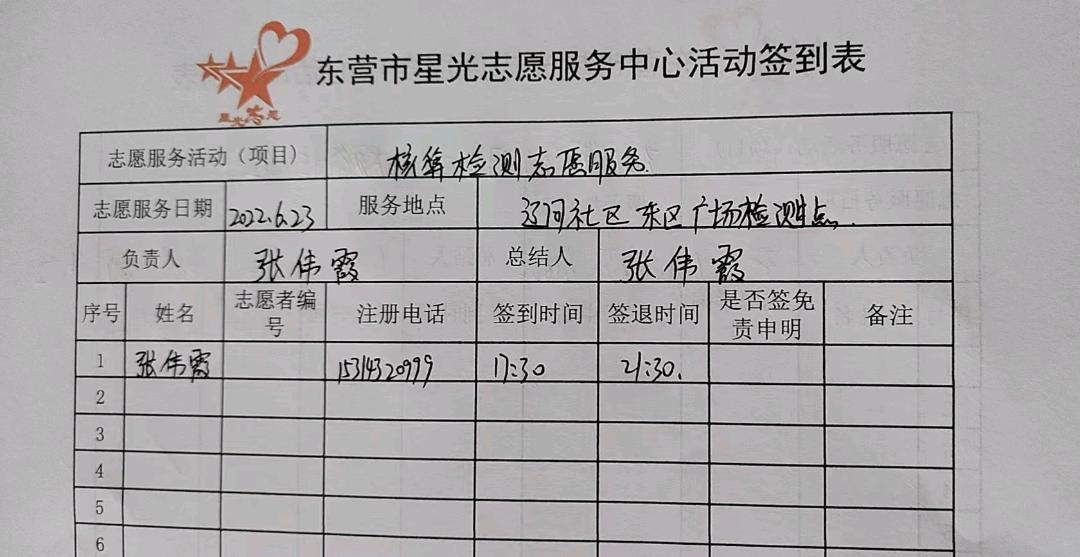 东营市星光志愿服务中心活动签到表
星光志愿
志愿服务活动（项目） 核算检测志愿服务
志愿服务日期 2022.6.23 服务地点 辽河社区东区广场检测点.
负责人 张伟霞 总结人 张伟霞
序号 姓名 志愿者编号 注册电话 签到时间 签退时间 是否签免责申明 备注
1 张伟霞 15314320999 17:30 21:30.
2
3
4
5
6